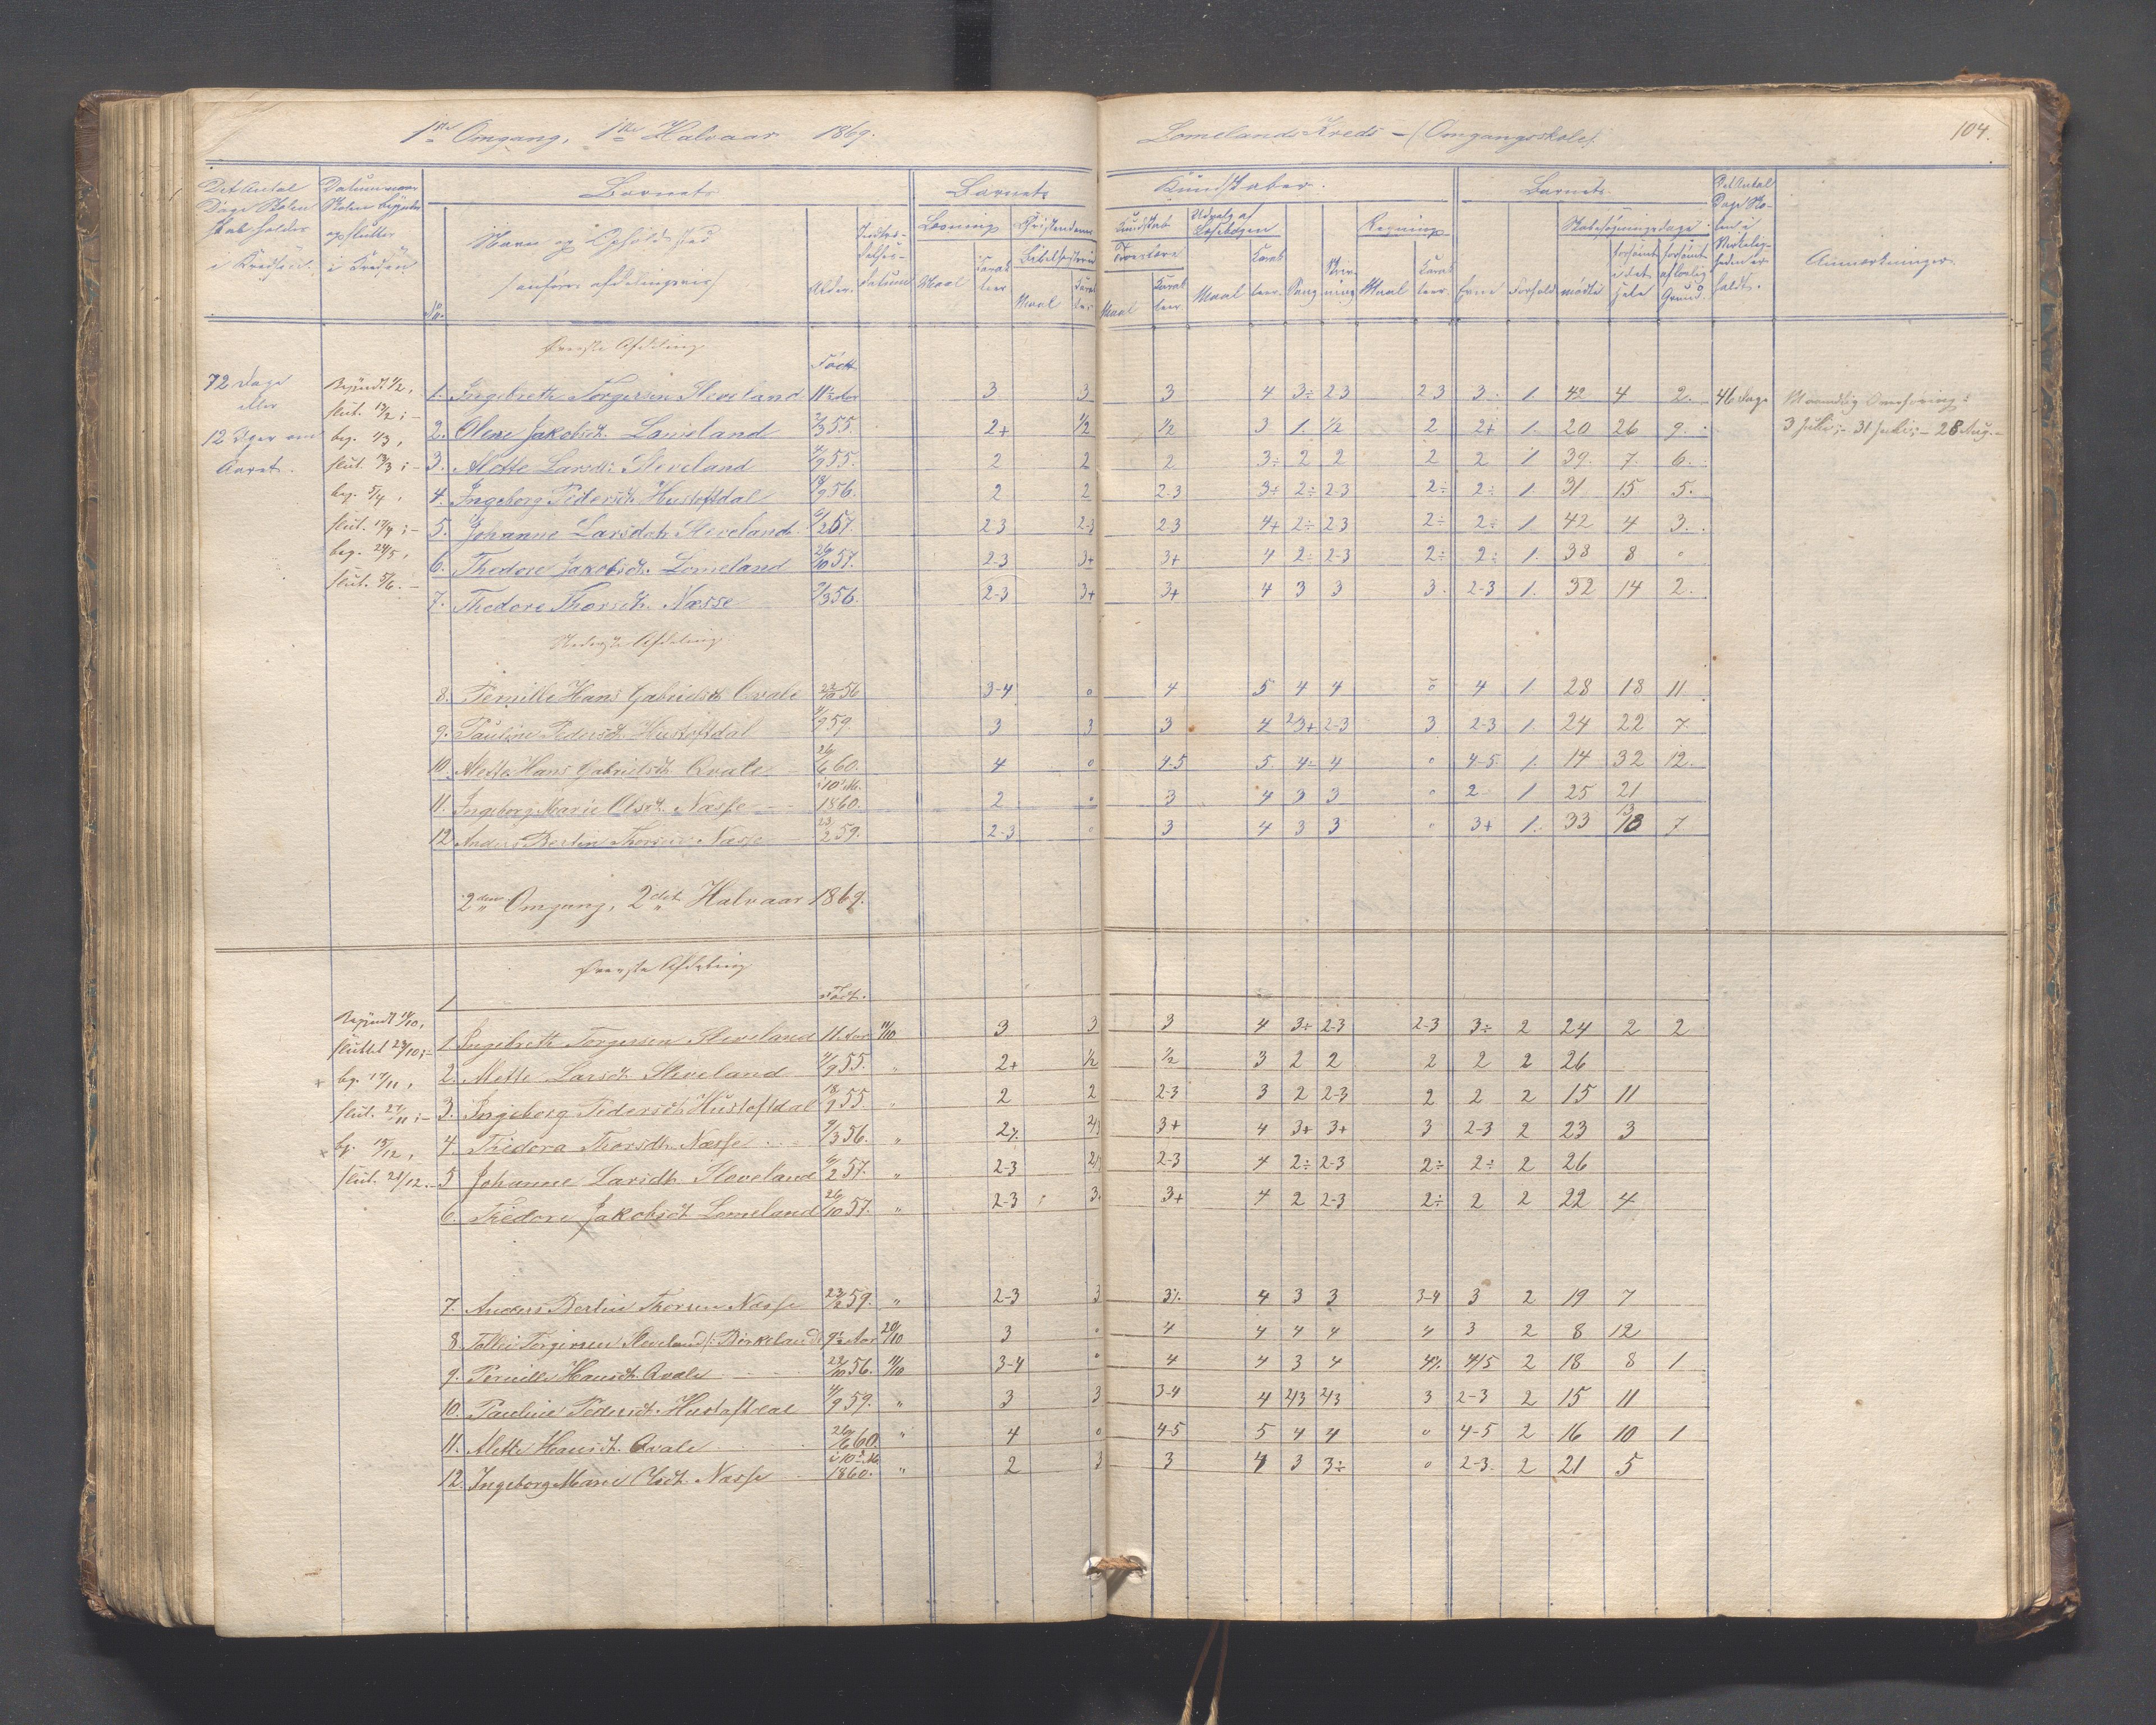 1ste Omgang, 1ste Halvaar 1869.
Lomelands Kreds – (Omgangsskole).
104.
Det Antal Dage Skolen skal holdes i Kredsen.
Datum naar Skolen begynder og slutter i Kredsen
Barnets
Barnets
Kundskaber.
Barnets
Det Antal Dage Skolen i Virkeligheden er holdt.
Anmærkninger.
No.
Navn og Opholdssted (anføres afdelingsvis)
Alder.
Indtrædelses-Datum
Læsning
Maal
Karakteer
Christendoms
Bibelhistorie
Maal
Karakter
Kundskab
Troeslære
Maal
Karakteer
Udvalg af Læsebogen
Maal
Karakteer.
Sang
Skrivning
Regning
Maal
Karakteer.
Evne
Forhold
Skolesøgningsdage:
mødte
forsømte i det hele
forsømte af lovlig Grund.
Øverste Afdeling
Født
72 Dage eller
12 Uger om Aaret.
Begyndt 1/2,
slut. 13/2; –
beg. 4/3,
slut. 13/3; –
beg. 5/4,
slut. 17/4; –
beg. 24/5,
slut. 5/6. –
1. Ingebreth Torgersen Sleveland 11½ Aar 3 3 3 4 3÷ 2-3 2-3 3 1. 42 4 2. 46 Dage Maanedlig Overhøring:
2. Olene Jakobsdt. Lomeland 2/3 55. 2+ 1/2 1/2 3 1. 1/2 2 2+ 1. 20 26 9. 3 Juli; – 31 Juli; – 28 Aug. –
3. Mette Larsdt. Sleveland 4/9 55. 2 2 2 3÷ 2 2 2 2 1 39. 7. 6.
4. Ingeborg Pedersdt. Hustoftdal 18/9 56. 2 2 2-3 3+ 2÷ 2-3 2÷ 2÷ 1. 31 15 5.
5. Johanne Larsdtr. Sleveland. 6/2 57. 2-3 2-3 2-3 4+ 2÷ 2-3 2÷ 2÷ 1 42 4 3.
6. Thedore Jakobsdt. Lomeland 26/10 57. 2-3 3+ 3+ 4 2÷ 2-3 2÷ 2÷ 1. 38 8 0
7. Thedora Thorsdt. Næsse 9/3 56. 2-3 3+ 3+ 4 3 3 3. 2-3 1. 32 14 2.
Nederste Afdeling.
8. Pernille Hans Gabrielsdt. Qvale 22/10 56 3-4 0 4 5 4 4 0 4 1 28 18 11
9. Pauline Pedersdt. Hustoftdal 4/9 59. 3 3 3 4 2-3+ 2-3 3 2-3 1. 24 22 7.
10. Mette Hans Gabrielsdt. Qvale 26/6 60. 4 0 4-5 5 4÷ 4 0 4-5 1. 14 32 12.
11. Ingeborg Marie Olsdt. Næsse i 10. M. 1860. 2 0 3 4 3 3 0 2 1 25 21
12. Anders Bertin Thorsen Næsse 23/2 59. 2-3 0 3 4 3 3 0 3+ 1. 33 13 7
2den Omgang, 2det Halvaar 1869.
Øverste Afdeling
Født.
Begyndt 14/10,
sluttet 23/10; –
beg. 17/11,
slut. 27/11; –
bg. 15/12,
slut. 21/12. –
1. Ingebreth Torgersen Sleveland 11 Aar 14/10 3 3 3 4 3+ 2-3 2-3 3÷ 2 24 2 2
2. Mette Larsdt. Sleveland 4/9 55. " 2+ 1/2 1/2 3 2 2 2 2 2 26
3. Ingeborg Pedersdt. Hustoftdal 18/9 55 " 2 2 2-3 3 2 2-3 2 2 2 15 11
4. Thedora Thorsdt. Næsse 9/3 56. " 2/. 2/3 3+ 4 3+ 3+ 3 2-3 2 23 3
5 Johanne Larsdt. Sleveland 6/2 57. " 2-3 2/3 2-3 4 2÷ 2-3 2÷ 2÷ 2 26
6. Thedore Jakobsdt. Lomeland 26/10 57. " 2-3 3. 3+ 4 2 2-3 2÷ 2 2 22 4
7. Anders Bertin Thorsen Næsse 23/2 59. " 2-3 3 3/. 4 3 3 3-4 3 2 19 7
8 Tallei Torgersen Sleveland /: Birkeland 9½ Aar 20/10 3 0 4 4 4 4 4 3 2 8 12
9. Pernille Hansdt. Qvale 22/10 56. 14/10 3-4 0 4 4 3 4 4/. 4/5 2 18 8 1
10. Pauline Pedersdt. Hustoftdal 4/9 59. " 3 3 3-4 4 2/3 2/3 3 2-3 2 15 11
11. Mette Hansdt. Qvale 26/6 60. " 4 0 4-5 5 4 4 0 4-5 2 16 10 1
12. Ingeborg Marie Olsdt. Næsse i 10. M. 1860. " 2 3 3 4 3 3÷ 0 2-3. 2 21 5